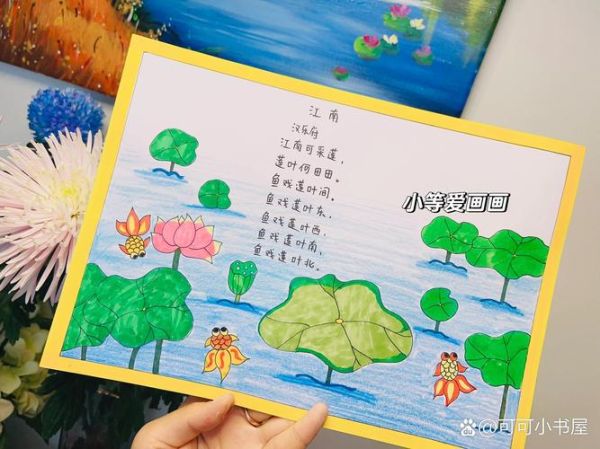 江南
汉乐府
江南可采莲，
莲叶何田田。
鱼戏莲叶间。
鱼戏莲叶东，
鱼戏莲叶西，
鱼戏莲叶南，
鱼戏莲叶北。
小等爱画画
Bai du @可可小书屋